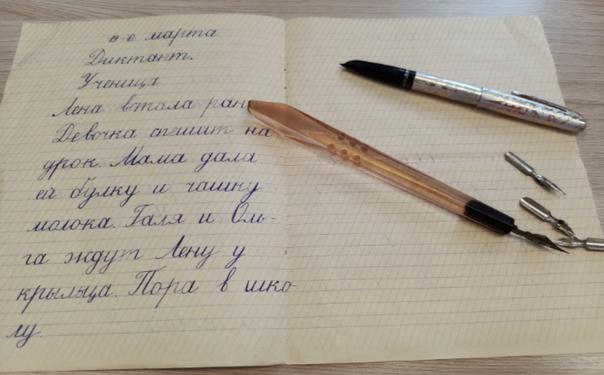 8-е марта
Диктант.
Ученица
Лена встала ран
Девочка спешит на
урок. Мама дала
ей булку и чашку
молока. Галя и Оль-
га ждут Лену у
крыльца. Пора в шко-
лу.